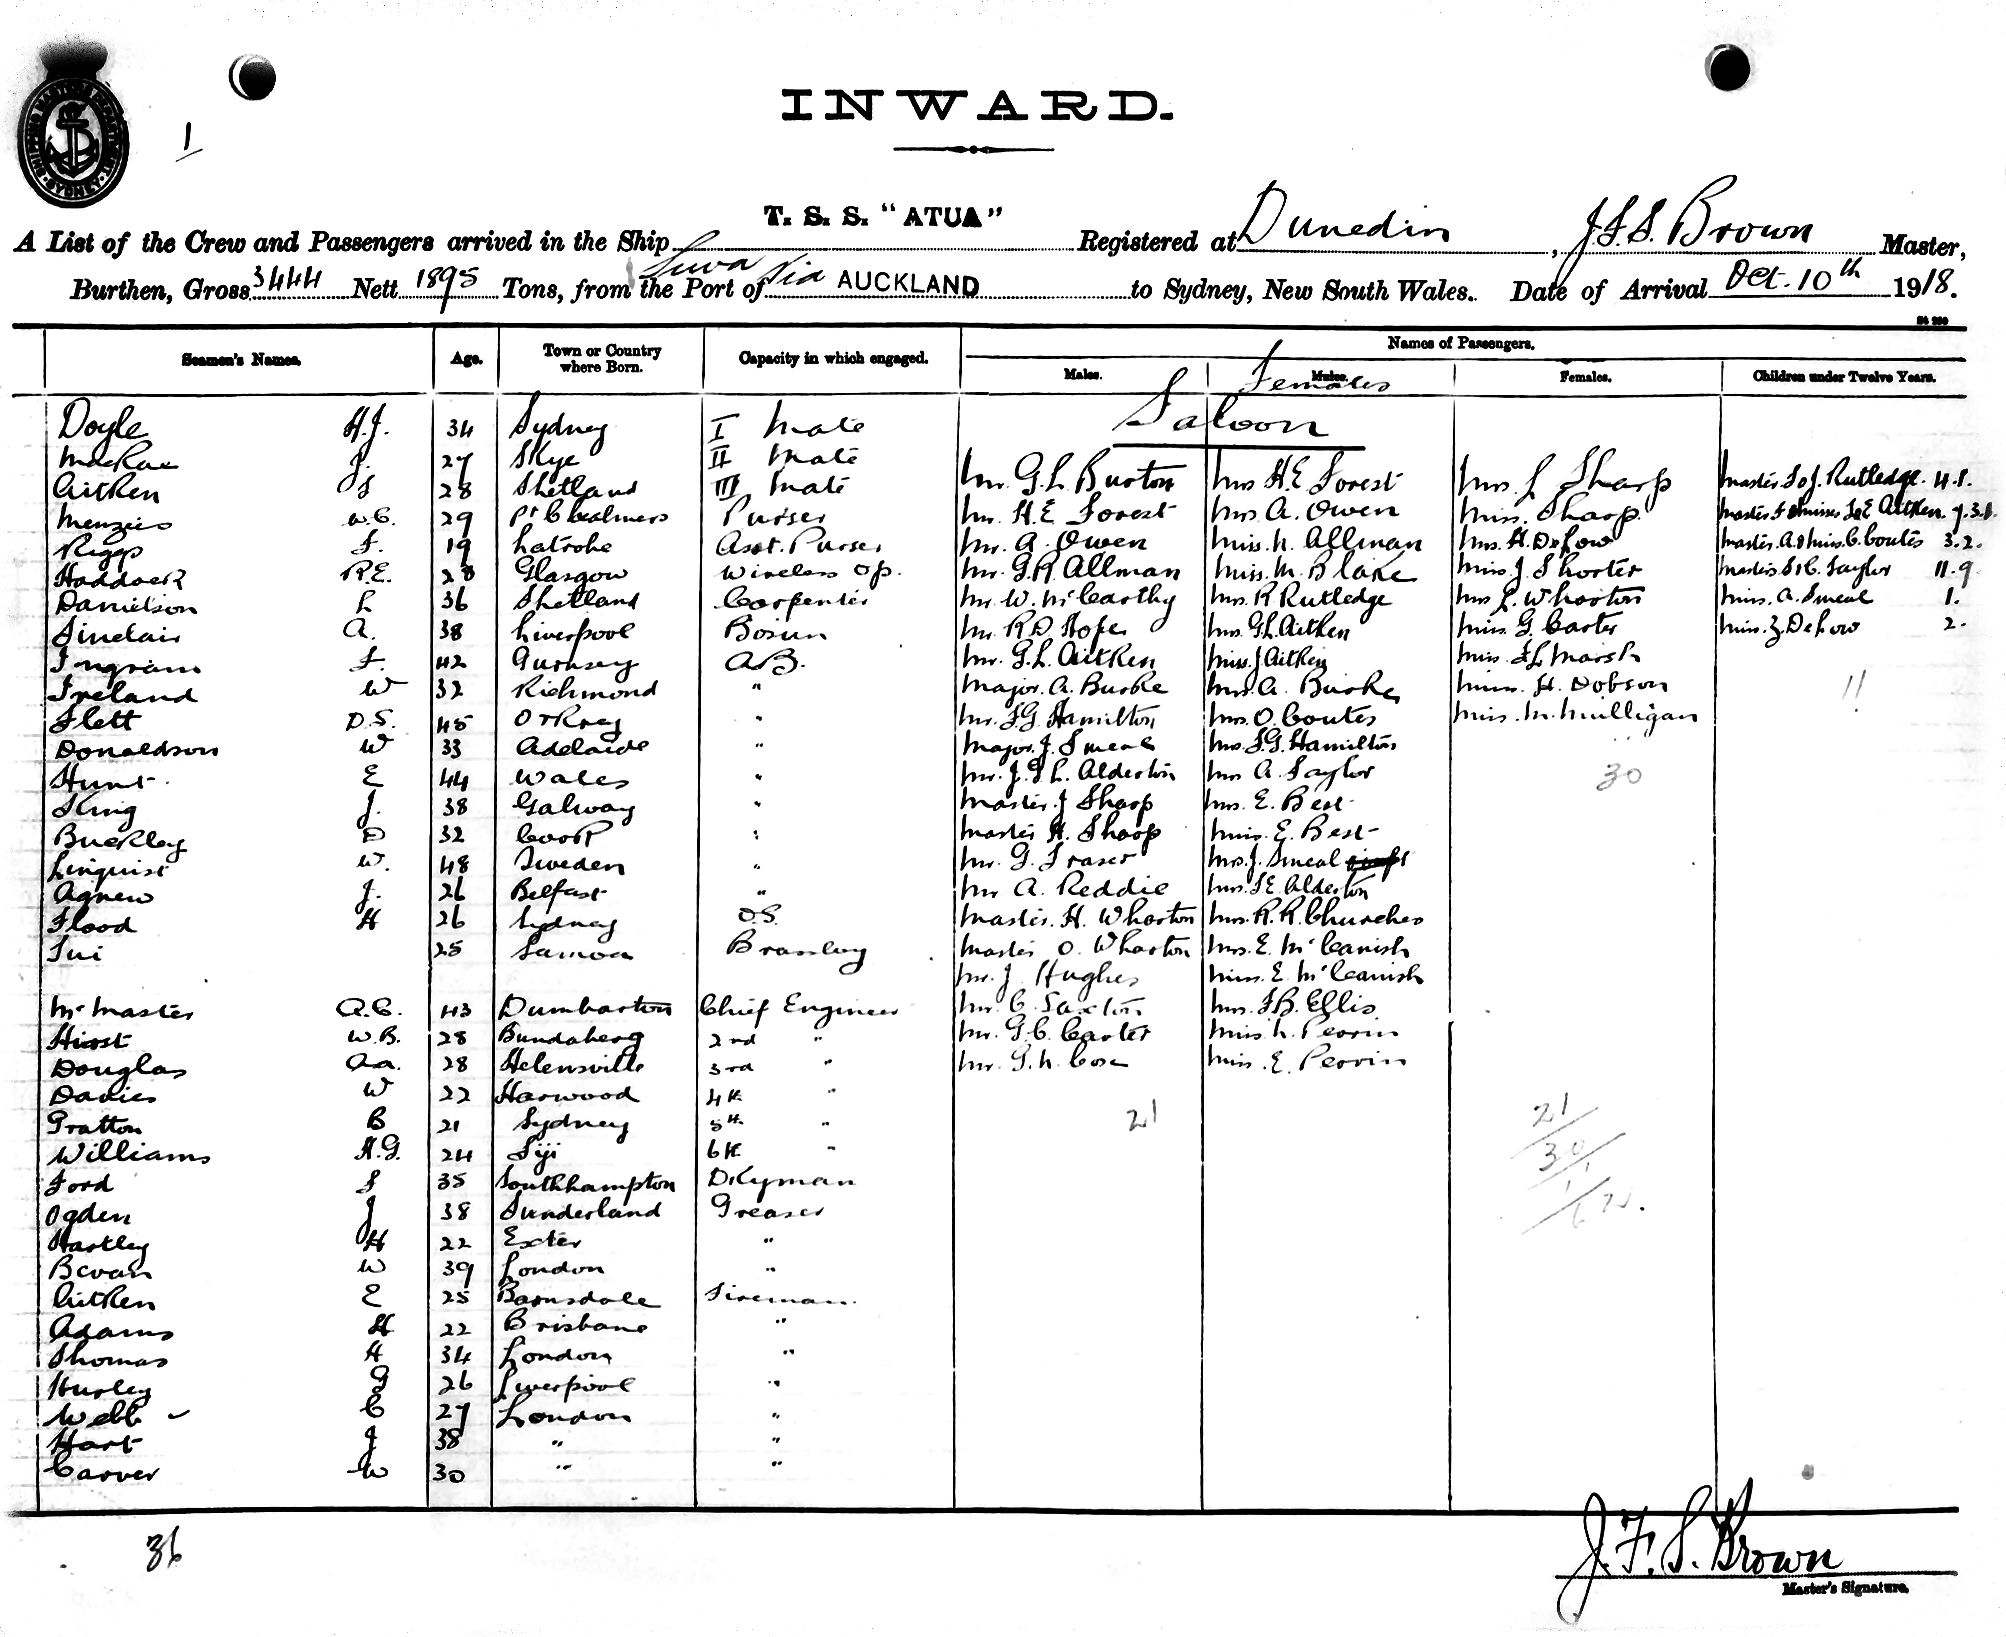 1
INWARD.
T. S. S. "ATUA"
A List of the Crew and Passengers arrived in the Ship Registered at Dunedin, J.F.S. Brown Master,
Burthen, Gross 3444 Nett 1895 Tons, from the Port of Suva Via AUCKLAND to Sydney, New South Wales. Date of Arrival Oct. 10th 1918.
Seamen's Names. Age. Town or Country where Born. Capacity in which engaged. Names of Passengers.
Males. Males. Females Females. Children under Twelve Years.
Saloon
Doyle H.J. 34 Sydney I Mate
MacRae J. 27 Skye II Mate
Aitken J 28 Shetland III Mate
Menzies W.C. 29 Pt Chalmers Purser
Riggs F. 19 Latrobe Asst. Purser
Haddock R.E. 28 Glasgow Wireless Op.
Danielson L 36 Shetland Carpenter
Sinclair A. 38 Liverpool Bosun
Ingram F. 42 Guernsey A.B.
Ireland W 32 Richmond "
Flett D.S. 45 Orkney "
Donaldson W 33 Adelaide "
Hunt E 44 Wales "
King J. 38 Galway "
Buckley D 32 Cork "
Linquist W. 48 Sweden "
Agnew J. 26 Belfast "
Flood H 26 Sydney O.S.
Tui 25 Samoa Brassboy
McMaster A.C. 43 Dumbarton Chief Engineer
Hirst W.B. 28 Bundaberg 2nd "
Douglas A.A. 28 Helensville 3rd "
Davies W 22 Harwood 4th "
Gratton B 21 Sydney 5th "
Williams H.G. 24 Fiji 6th "
Ford J 35 Southhampton Dkyman
Ogden J 38 Sunderland Greaser
Hartley H 22 Exeter "
Bevan W 39 London "
Aitken E 25 Barnsdale Fireman
Adams H 22 Brisbane "
Thomas H 34 London "
Hurley G 26 Liverpool "
Webb C 27 London "
Hart J 38 " "
Carver W 30 " "
36
Mr. G.L. Burton
Mr. H.E. Forest
Mr. A. Owen
Mr. G.R. Allman
Mr. W. McCarthy
Mr. R.D. Hope
Mr. G.L. Aitken
Major. A. Burke
Mr. F.G. Hamilton
Major. J. Smeal
Mr. J.G.L. Alderton
Master. J Sharp
Master H. Sharp
Mr. G. Fraser
Mr A. Reddie
Master. H. Wharton
Master O. Wharton
Mr. J. Hughes
Mr. C. Saxton
Mr. G.C. Carter
Mr. G.N. Cox
21
Mrs H.E Forest
Mrs A. Owen
Miss. N. Allman
Miss. M. Blake
Mrs. R Rutledge
Mrs. G.L. Aitken
Miss. J Aitken
Mrs. A. Burke
Mrs. O. Coutes
Mrs. F.G. Hamilton
Mrs A. Taylor
Mrs. E. Best
Miss. E. Best
Mrs. J. Smeal
Mrs. F.E. Alderton
Mrs. R.R. Churches
Mrs. E. McCanish
Miss. E. McCanish
Mrs. F.B. Ellis
Miss L. Perrin
Miss. E. Perrin
Mrs. L Sharp
Miss. Sharp.
Mrs. H. Defow
Miss. J. Shorter
Mrs L. Wharton
Miss. G. Carter
Miss. F.L. Marsh
Miss. H. Dobson
Miss. M. Mulligan
30
21
30
11
62.
Master. F & J. Rutledge. 4.1.
Master F & Misses J & E Aitken. 7.3.1.
Master. A & Miss. C. Coutes 3.2.
Masters. S & C. Taylor 11.9
Miss. A. Smeal 1.
Miss. Z. Defow 2.
11
J.F.S. Brown
Master's Signature.